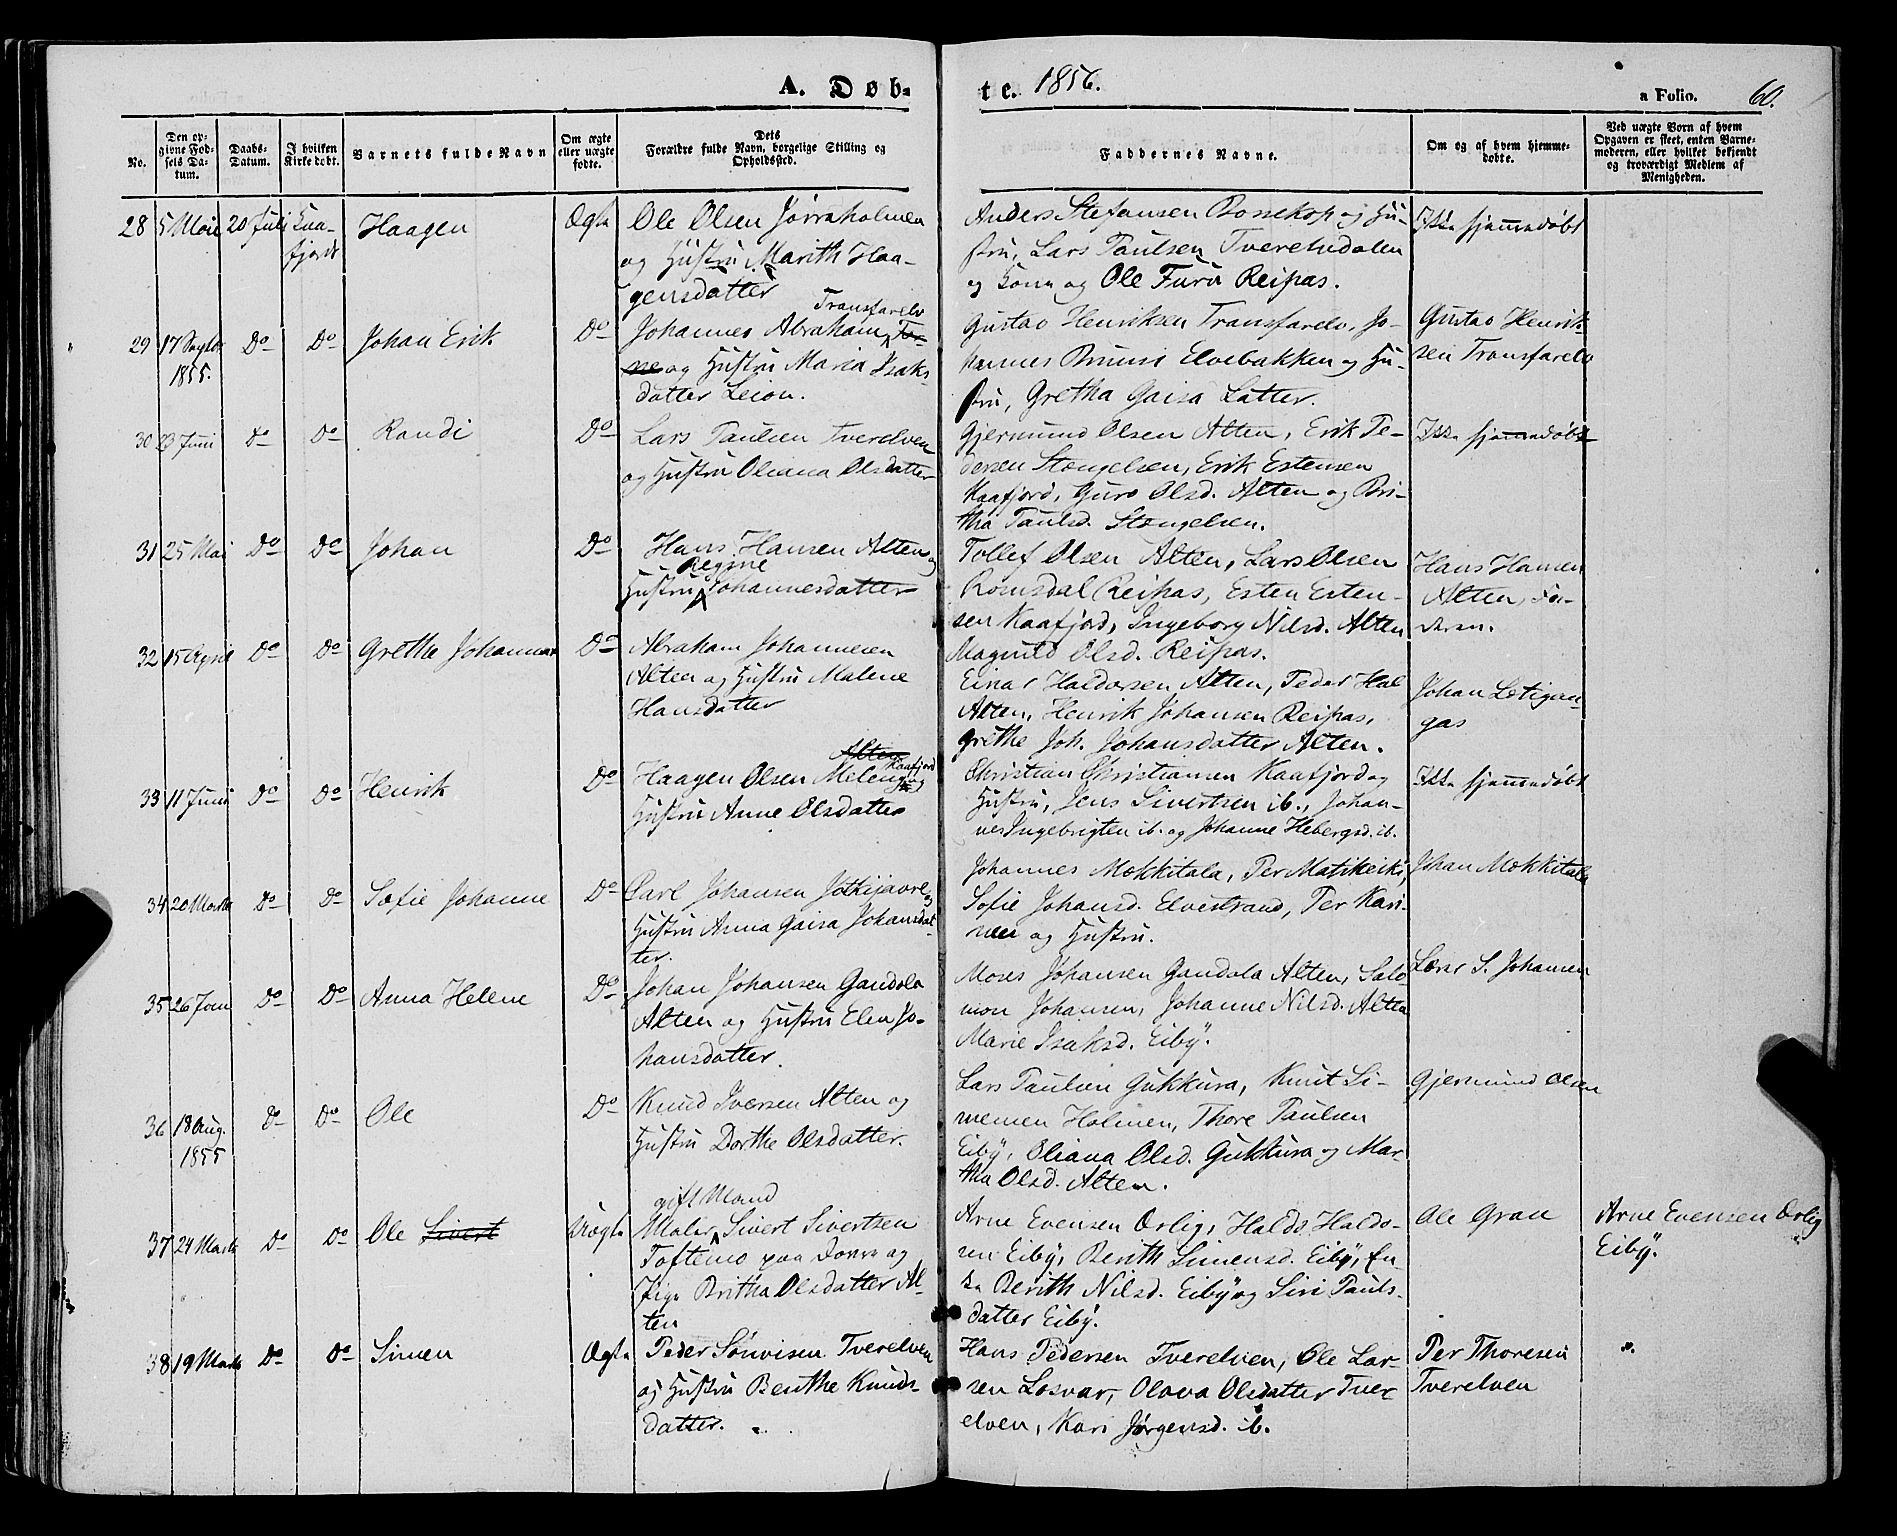 A. Døb-
te. 1856.
a Folio. 60.
No.
Den op-
givne Fød-
sels Da-
tum.
Daabs-
Datum.
I hvilken
Kirke døbt.
Barnets fulde Navn
Om ægte
eller uægte
fødte.
Dets
Forældre fulde Navn, borgelige Stilling og
Opholdssted.
Faddernes Navne.
Om og af hvem hjemme-
døbte.
Ved uægte Børn af hvem
Opgaven er skeet, enten Barne-
moderen, eller hvilket bekjendt
og troværdigt Medlem af
Menigheden.
28 5 Mai 20 Juli Kaa-
fjord
Haagen
Ægte
Ole Olsen Jørraholmen
og Hustru Marith Haa-
gensdatter
Anders Stefansen Bossekop og Hu-
stru, Lars Paulsen Tverelvdalen
og Kone og Ole Furu Reipas.
Ikke hjemmedøbt
29 17 Septbr
1855.
Do Do Johan Erik Do
Transfarelv
Johannes Abraham, To-
ne og Hustru Maria Isaks-
datter Leion.
Gustav Henriksen Transfarelv, Jo-
hannes Bruusi Elvebakken og Hu-
stru, Gretha Gaisa Latter.
Gustav Henrik-
sen Transfarelv
30 23 Juni Do Do Randi Do
Lars Paulsen Tverelven
og Hustru Oliana Olsdatter
Gjermund Olsen Alten, Erik Pe-
dersen Stengelsen, Erik Estensen
Kaafjord, Guro Olsd. Alten og Bri-
tha Paulsd. Stengelsen.
Ikke hjemmedøbt
31 25 Mai Do Do Johan Do
Hans Hansen Alten og
Regine
Hustru Johannesdatter
Tollef Olsen Alten, Lars Olsen
Romsdal Reipas, Esten Esten-
sen Kaafjord, Ingeborg Nilsd. Alten
Magnild Olsd. Reipas.
Hans Hansen
Alten, Fa-
deren.
32 15 April Do Do Grethe Johanna Do
Abraham Johannesen
Alten og Hustru Malene
Hansdatter
Einar Haldorsen Alten, Peder Hal
Alten, Henrik Johansen Reipas,
Grethe Joh. Johansdatter Alten.
Johan Letigan-
gas
33 11 Juni Do Do Henrik Do
Alten
Kaafjord
Haagen Olsen Meleng og
Hustru Anne Olsdatter
Christian Christiansen Kaafjord og
Hustru, Jens Sivertsen ib., Johan-
nes Ingebrigten ib. og Johanne Hebergsd. ib.
Ikke hjemmedøbt
34 20 Marts Do Do Sofie Johanne Do
Carl Johansen Jotkijavre og
Hustru Anna Gaisa Johansdat-
ter.
Johannes Mokkitala, Per Matikeiki,
Sofie Johansd. Elvestrand, Per Kari-
nen og Hustru.
Johan Mokkitala
35 26 Jan Do Do Anna Helene Do
Johan Johansen Gandola
Alten og Hustru Elen Jo-
hansdatter.
Moses Johansen Gandola Alten, Salo-
mon Johansen, Johanne Nilsd. Alten
Marie Isaksd. Eiby.
Lærer S. Johansen
36 18 Aug.
1855
Do Do Ole Do
Knud Iversen Alten og
Hustru Dorthe Olsdatter.
Lars Paulsen Gukkura, Knut Si-
mensen Holmen, Thore Paulsen
Eiby, Oliana Olsd. Gukkura og Mar-
tha Olsd. Alten.
Gjermund Olsen
37 24 Marts Do Do Ole Sivert Uægte
gift Mand
Maler Sivert Sivertsen
Toftemo paa Dovre og
Pige Britha Olsdatter Al-
ten
Arne Evensen Ørlig, Halds Haldo-
ren Eiby, Berith Simensd. Eiby, En-
ke Berith Nilsd. Eiby og Siri Pauls-
datter Eiby.
Ole Gran
Arne Evensen Ørlig
Eiby.
38 19 Marts Do Do Simen Ægte
Peder Sønvisen Tverelven
og Hustru Berithe Knuds-
datter.
Hans Pedersen Tverelven, Ole Lar-
sen Losvar, Olava Olsdatter Tver-
elven, Kari Jørgensd. ib.
Per Thoresen
Tverelven